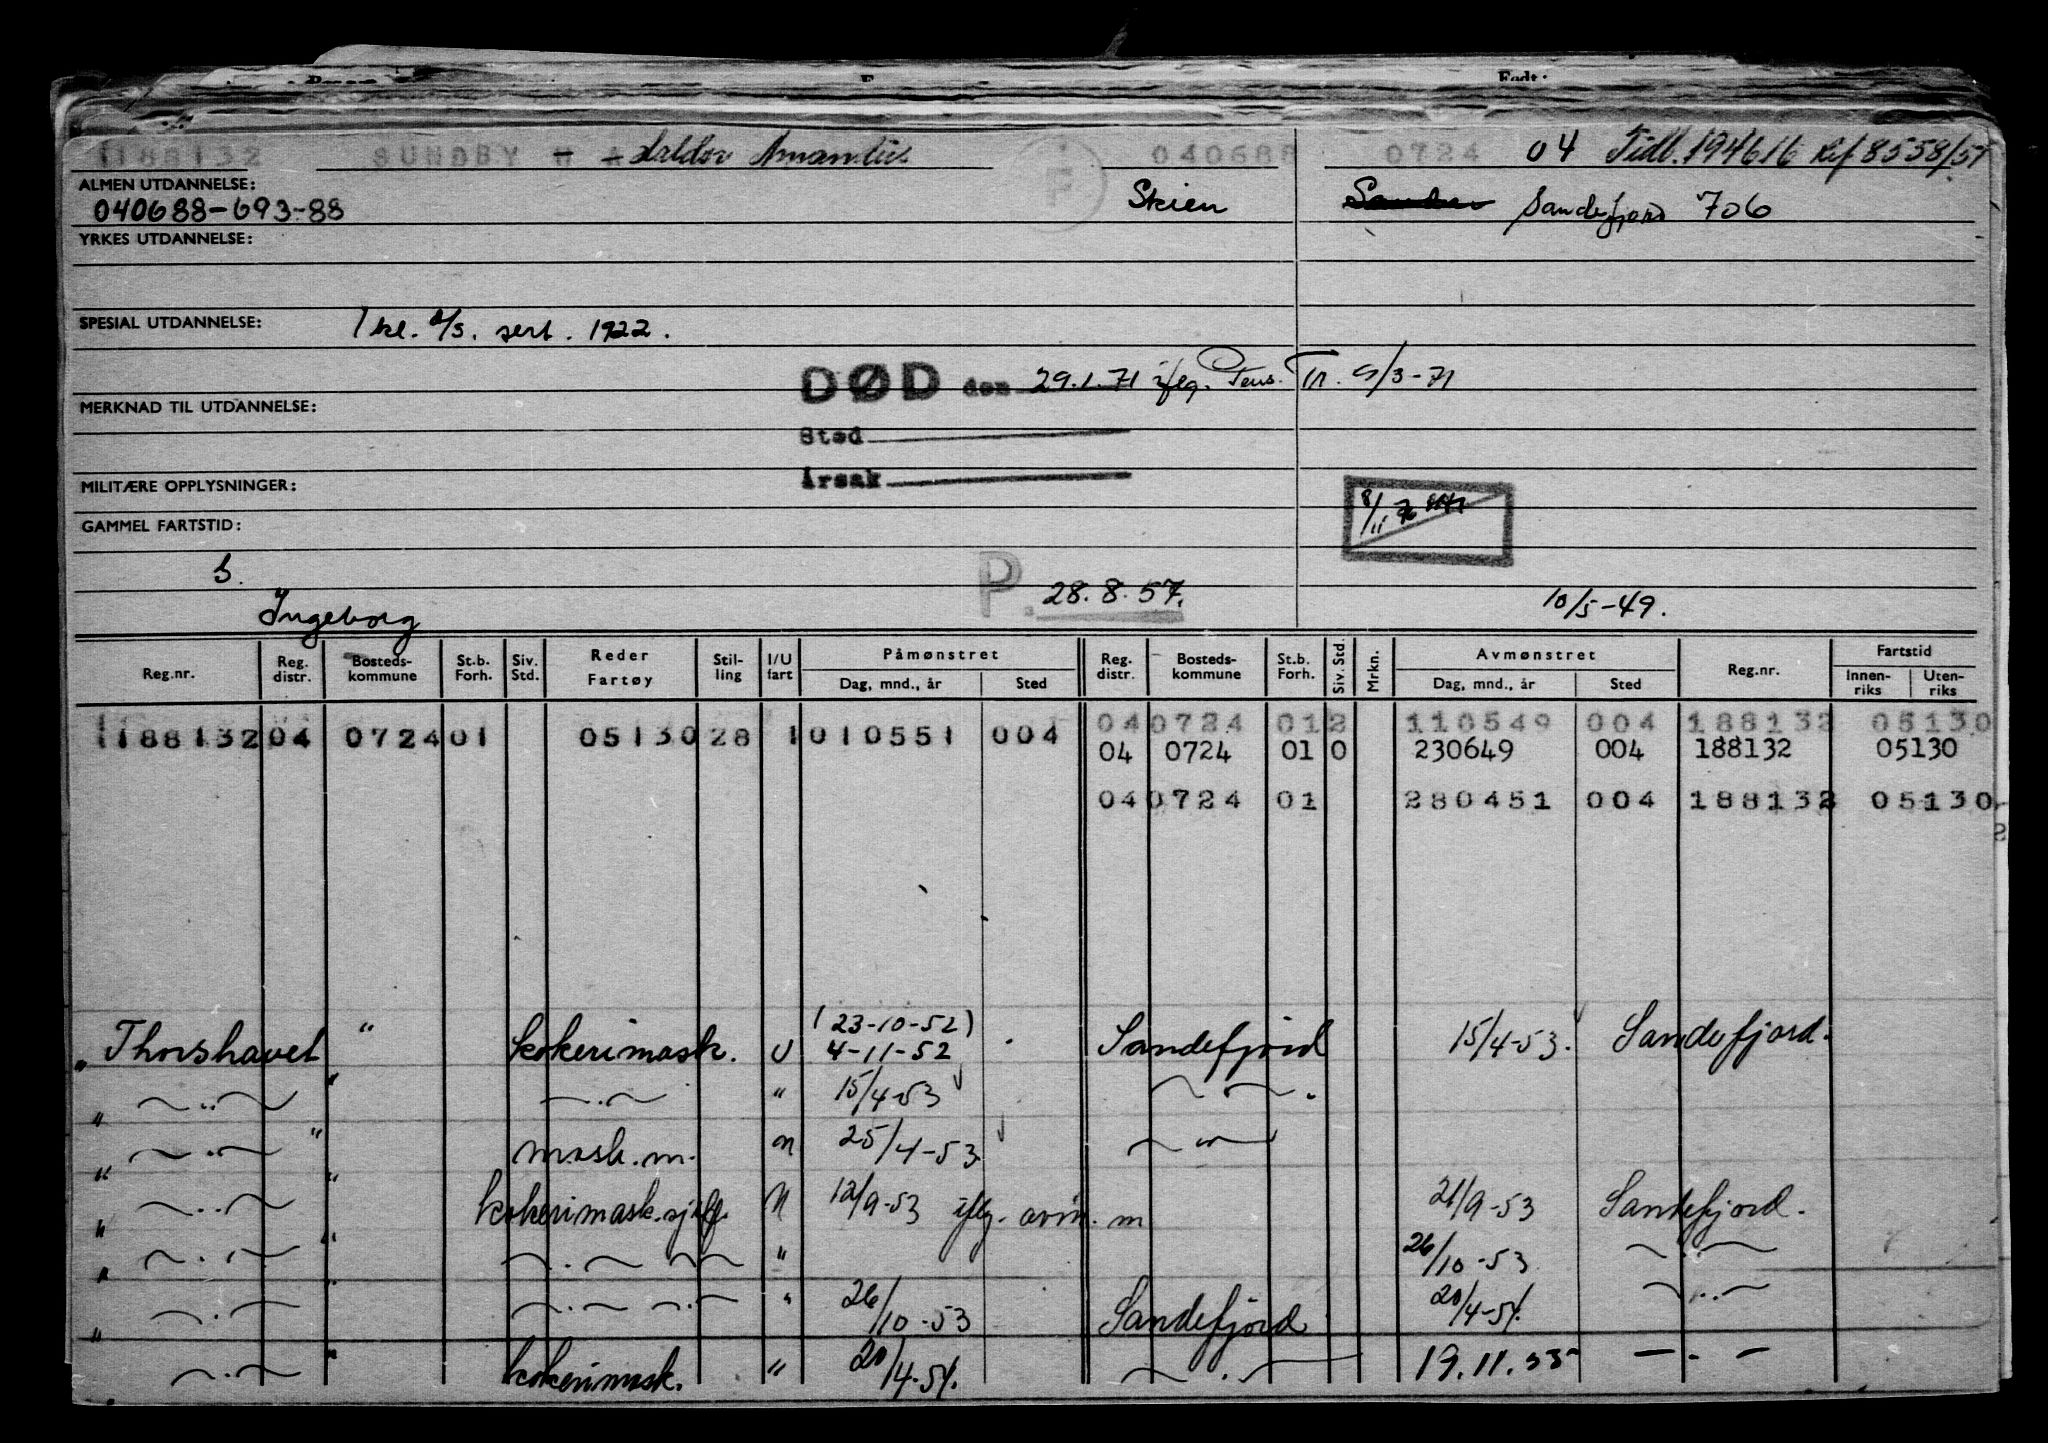 Født:
188132 SUNDBY H A Haldor Amantius 040688 0724 04 Tidl. 194616 Ref 8558/57
ALMEN UTDANNELSE:
040688-693-88 Skien Sandefjord 706
YRKES UTDANNELSE:
SPESIAL UTDANNELSE: 1 kl. d/s. sert. 1922.
DØD den 29.1.71 iflg. Pens. Tr. 9/3-71
MERKNAD TIL UTDANNELSE:
Sted
Årsak
MILITÆRE OPPLYSNINGER:
8/11 76
GAMMEL FARTSTID:
S.
P. 28.8.57. 10/5-49.
Ingeborg
Reg.nr. Reg. distr. Bosteds- kommune St.b. Forh. Siv. Std. Reder Fartøy Stil- ling I/U fart Påmønstret Dag, mnd., år Sted Reg. distr. Bosteds- kommune St.b. Forh. Siv. Std. Mrkn. Avmønstret Dag, mnd., år Sted Reg.nr. Fartstid Innen- riks Uten- riks
04 0724 01 2 110549 004 188132 05130
188132 04 0724 01 05130 28 1 010551 004
04 0724 01 0 230649 004 188132 05130
04 0724 01 280451 004 188132 05130
2
(23-10-52)
" Thorshavet " kokerimask. U 4-11-52 Sandefjord 15/4-53. Sandefjord.
" —..— " —.— " 15/4-53 —..—.
" —..— " mask.m. " 25/4-53 —"—
" —..— " kokerimask.sjef. " 12/9-53 iflg. avm. m 21/9-53 Sandefjord.
" —.— " —.— — " 26/10-53 —..—
" —.— " —.— —.— " 26/10-53 Sandefjord 20/4-54. —..—
" —..— " kokerimask. " 20/4-54. —.— 19.11.55 —.—